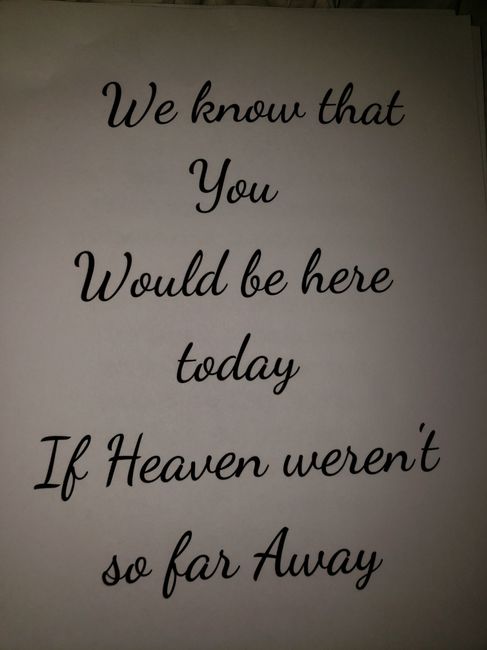 We know that
You
Would be here
today
If Heaven weren't
so far Away